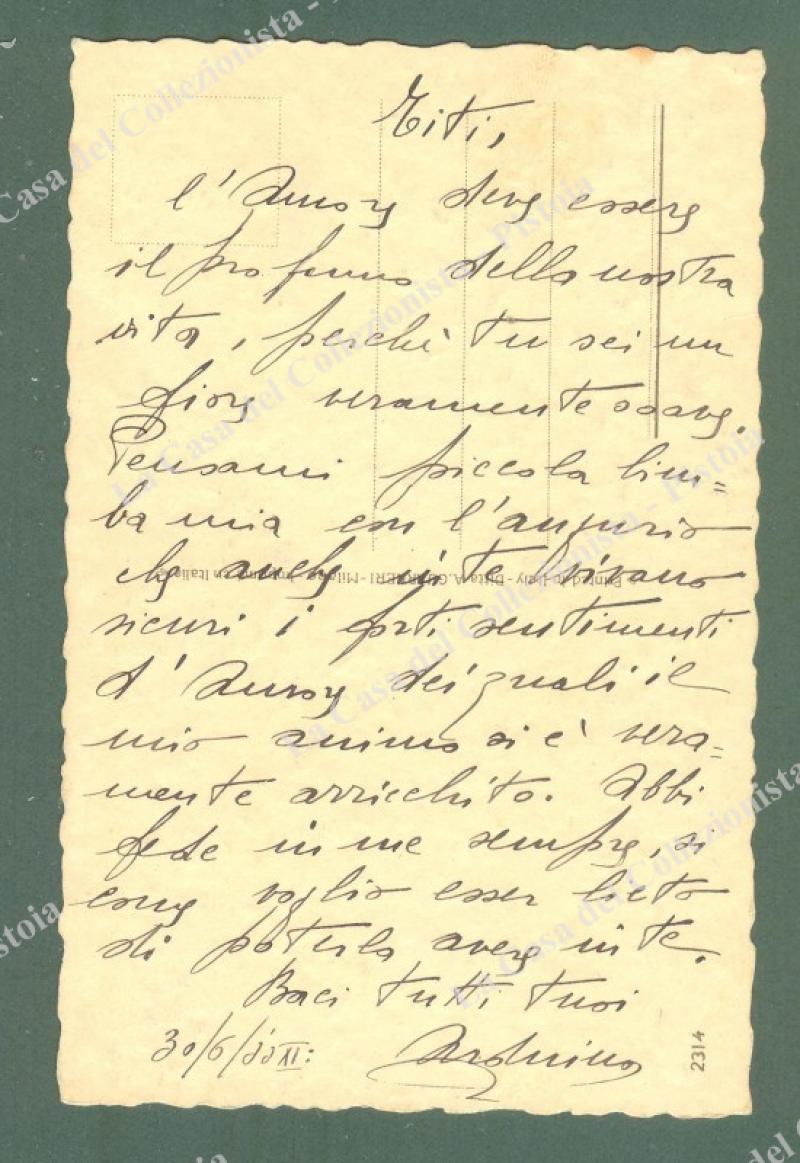 Titi,
l'Amore deve essere
il profumo della nostra
vita, perchè tu sei un
fiore veramente soave.
Pensami piccola bim=
ba mia con l'augurio
che anche in te vivano
sicuri i forti sentimenti
d'Amore dei quali il
mio animo si è vera=
mente arricchito. Abbi
fede in me sempre, sì
come voglio esser lieto
di poterla avere in te.
Baci tutti tuoi
30/6/33 XI:
Arduino
2314
Printed in Italy - Ditta A. GUARNERI - Milano - in Italie
La Casa del Collezionista - Pistoia